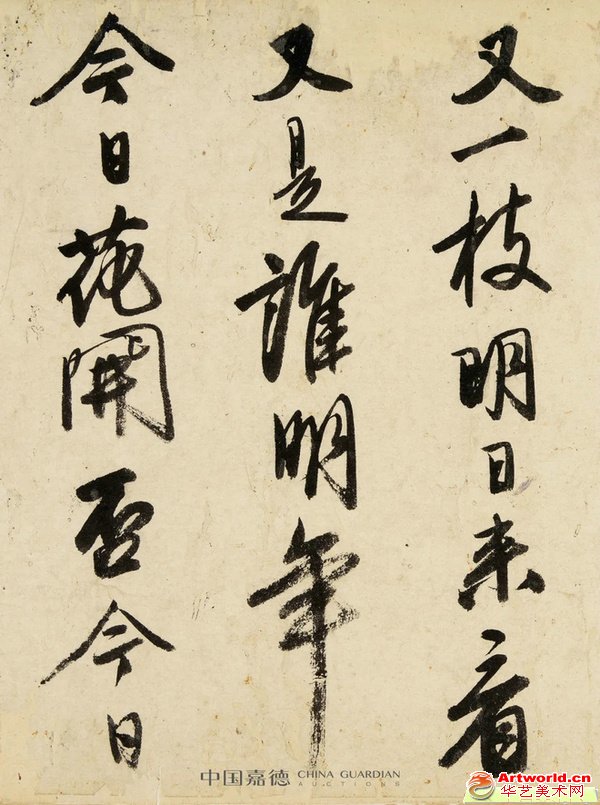 又一枝明日来看
又是誰明年
今日花開否今日
中国嘉德 CHINA GUARDIAN
AUCTIONS
Artworld.cn
华艺美术网